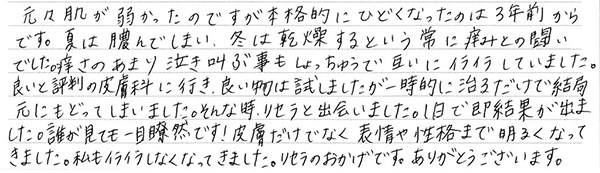 元々肌が弱かったのですが本格的にひどくなったのは3年前から
です。夏は膿んでしまい、冬は乾燥するという常に痒みとの闘い
でした。痒さのあまり泣き叫ぶ事もしょっちゅうで互いにイライラしていました。
良いと評判の皮膚科に行き、良い物は試しましたが一時的に治るだけで結局
元にもどってしまいました。そんな時、リセラと出会いました。1日で即結果が出ま
した。誰が見ても一目瞭然です!皮膚だけでなく表情や性格まで明るくなって
きました。私もイライラしなくなってきました。リセラのおかげです。ありがとうございます。